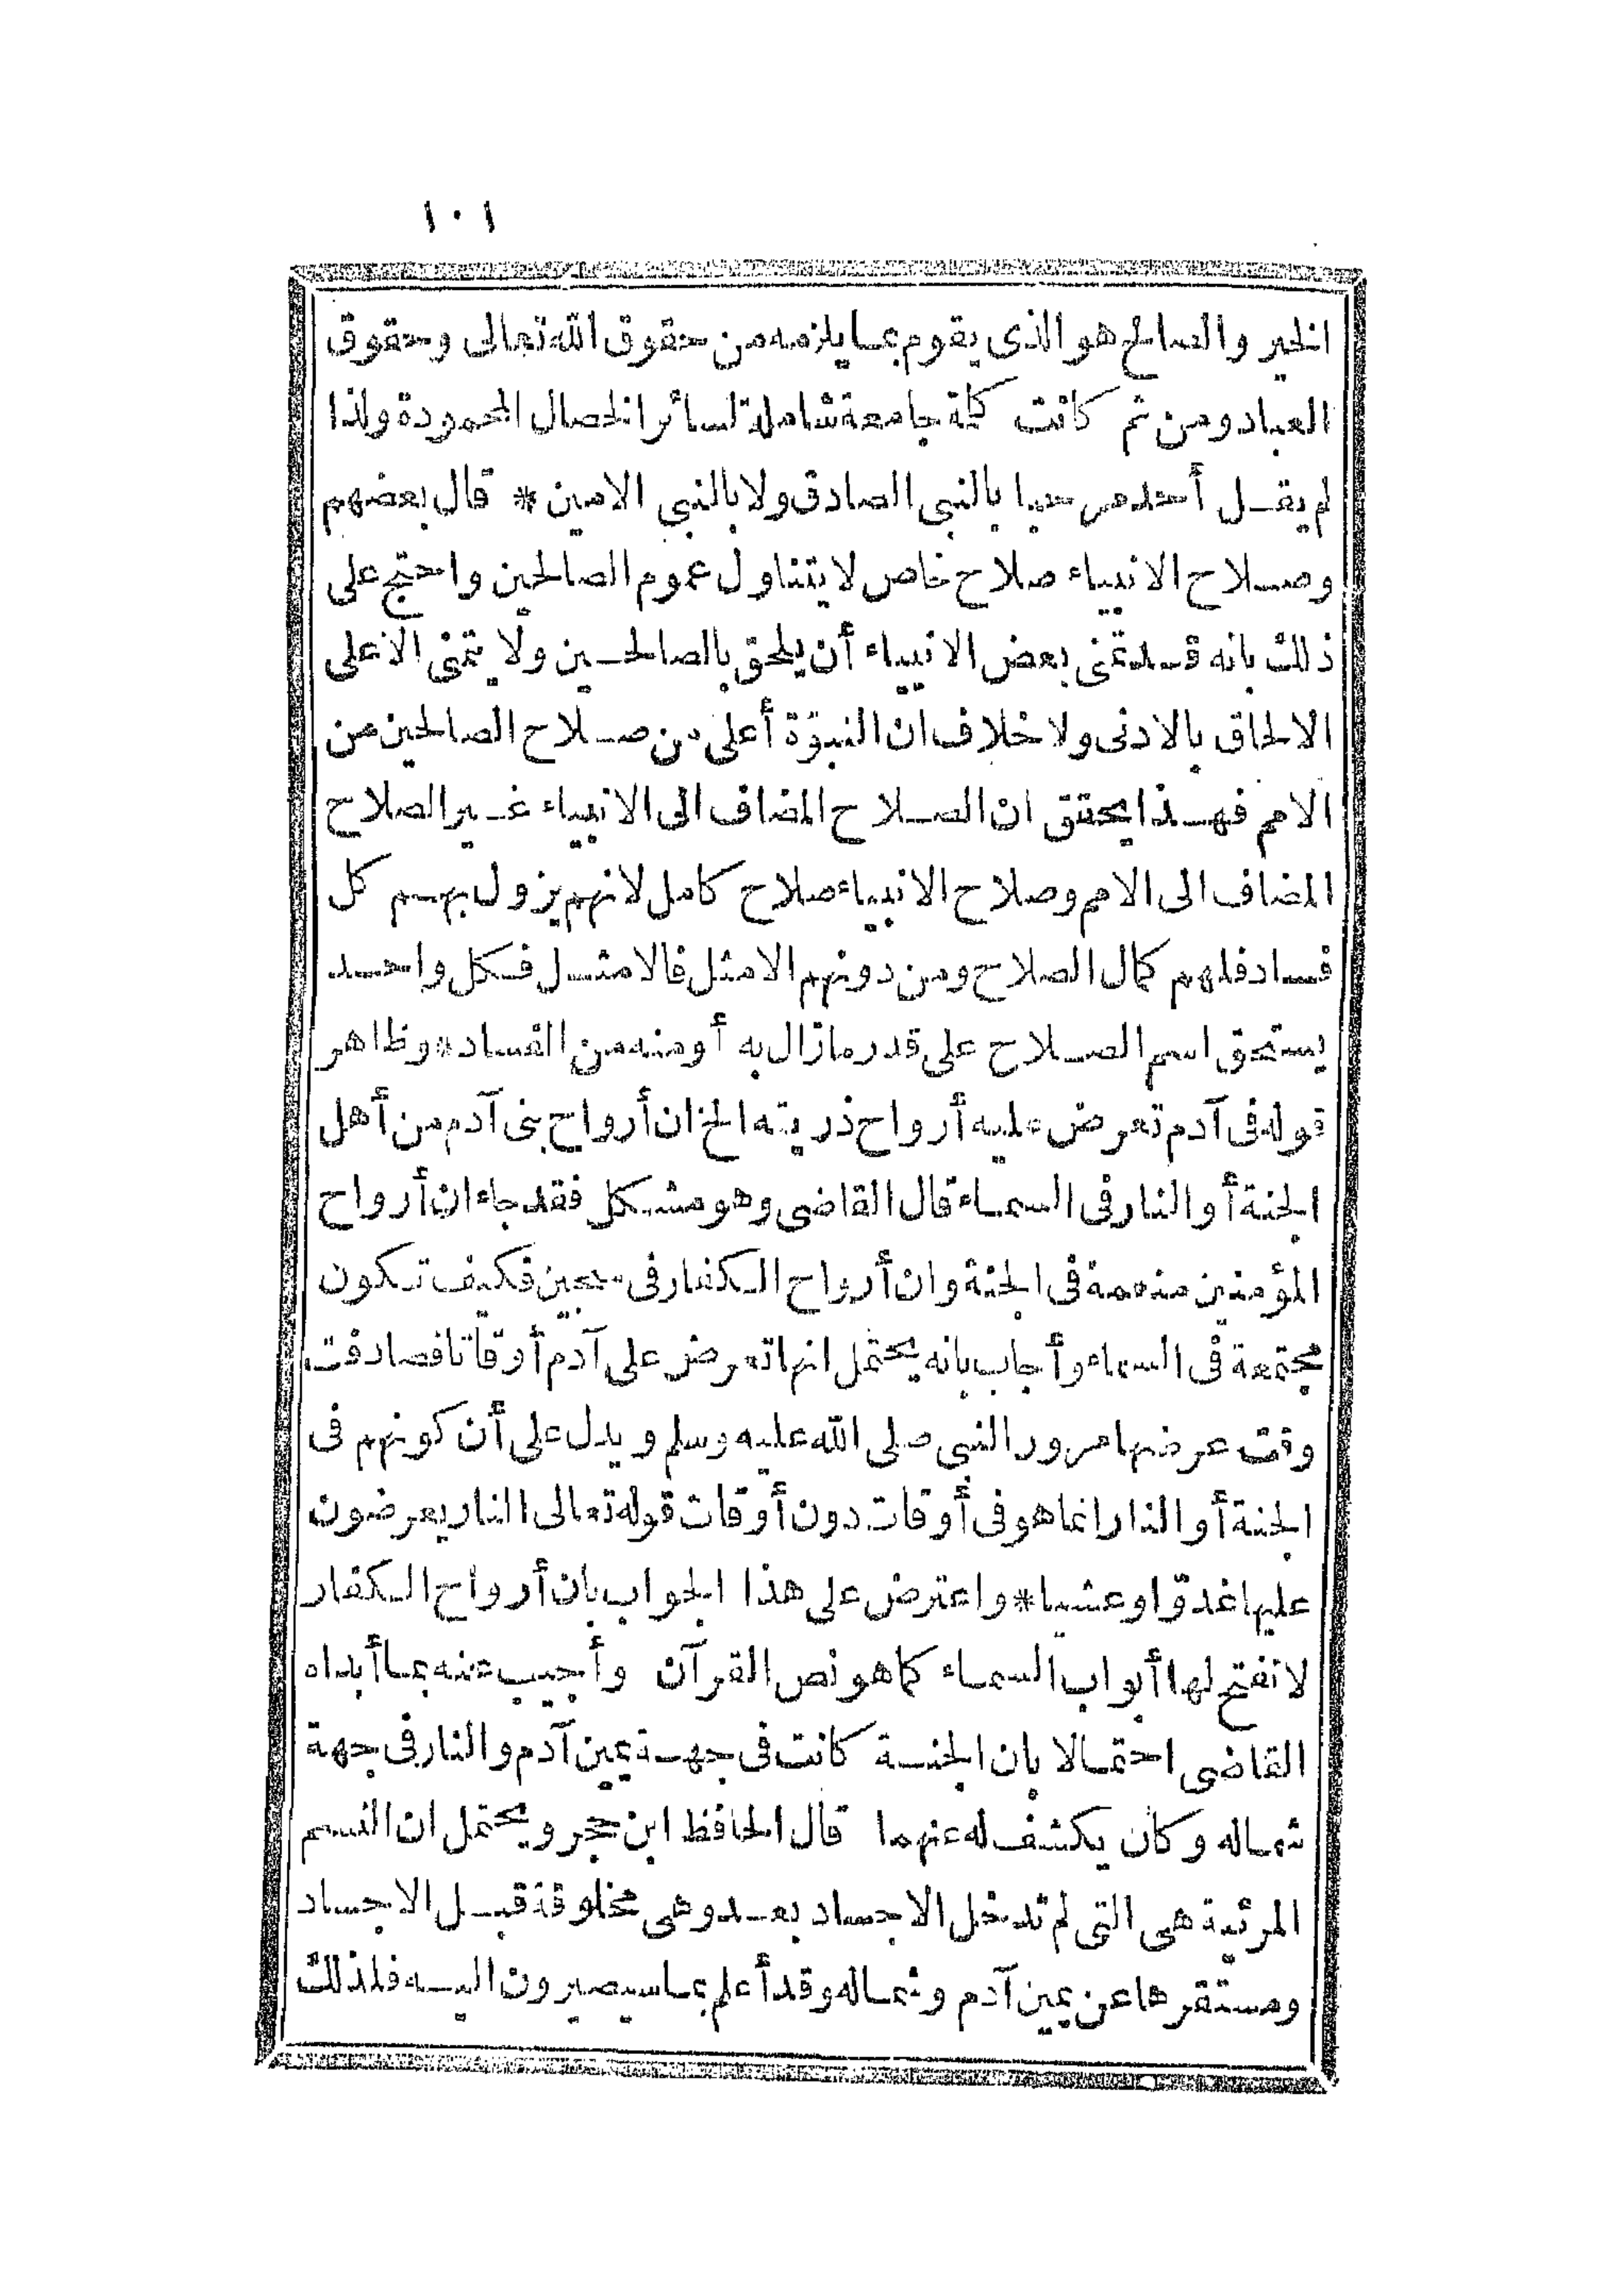 ١٠١
الخير والصالح هو الذى يقوم بما يلزمه من حقوق الله تعالى وحقوق
العباد ومن ثم كانت كلة جامعة شاملة لسائر الخصال المحمودة ولذا
لم يقل أحد مرحبا بالنبى الصادق ولا بالنبى الامين * قال بعضهم
وصلاح الانبياء صلاح خاص لا يتناول عموم الصالحين واحتج على
ذلك بانه قد تمنى بعض الانبياء أن يلحق بالصالحين ولا يتمنى الاعلى
الالحاق بالادنى ولا خلاف ان النبوّة أعلى من صلاح الصالحين من
الامم فهذا يحقق ان الصلاح المضاف الى الانبياء غير الصلاح
المضاف الى الامم وصلاح الانبياء صلاح كامل لانهم يزول بهم كل
فساد فلهم كمال الصلاح ومن دونهم الامثل فالامثل فكل واحد
يستحق اسم الصلاح على قدر ما زال به أو منه من الفساد * وظاهر
قوله فى آدم تعرض عليه أرواح ذريته الخ ان أرواح بنى آدم من أهل
الجنة أو النار فى السماء قال القاضى وهو مشكل فقد جاء ان أرواح
المؤمنين منعمة فى الجنة وان أرواح الكفار فى سجين فكيف تكون
مجتمعة فى السماء وأجاب بانه يحتمل انها تعرض على آدم أوقاتا فصادفت
وقت عرضها مرور النبى صلى الله عليه وسلم ويدل على أن كونهم فى
الجنة أو النار انما هو فى أوقات دون أوقات قوله تعالى النار يعرضون
عليها غدوّا وعشيا * واعترض على هذا الجواب بان أرواح الكفار
لا تفتح لها أبواب السماء كما هو نص القرآن وأجيب عنه بما أبداه
القاضى احتمالا بان الجنة كانت فى جهة يمين آدم والنار فى جهة
شماله وكان يكشف له عنهما قال الحافظ ابن حجر ويحتمل ان النسم
المرئية هى التى لم تدخل الاجساد بعد وهى مخلوقة قبل الاجساد
ومستقرها عن يمين آدم وشماله وقد أعلم بما سيصيرون اليه فلذلك